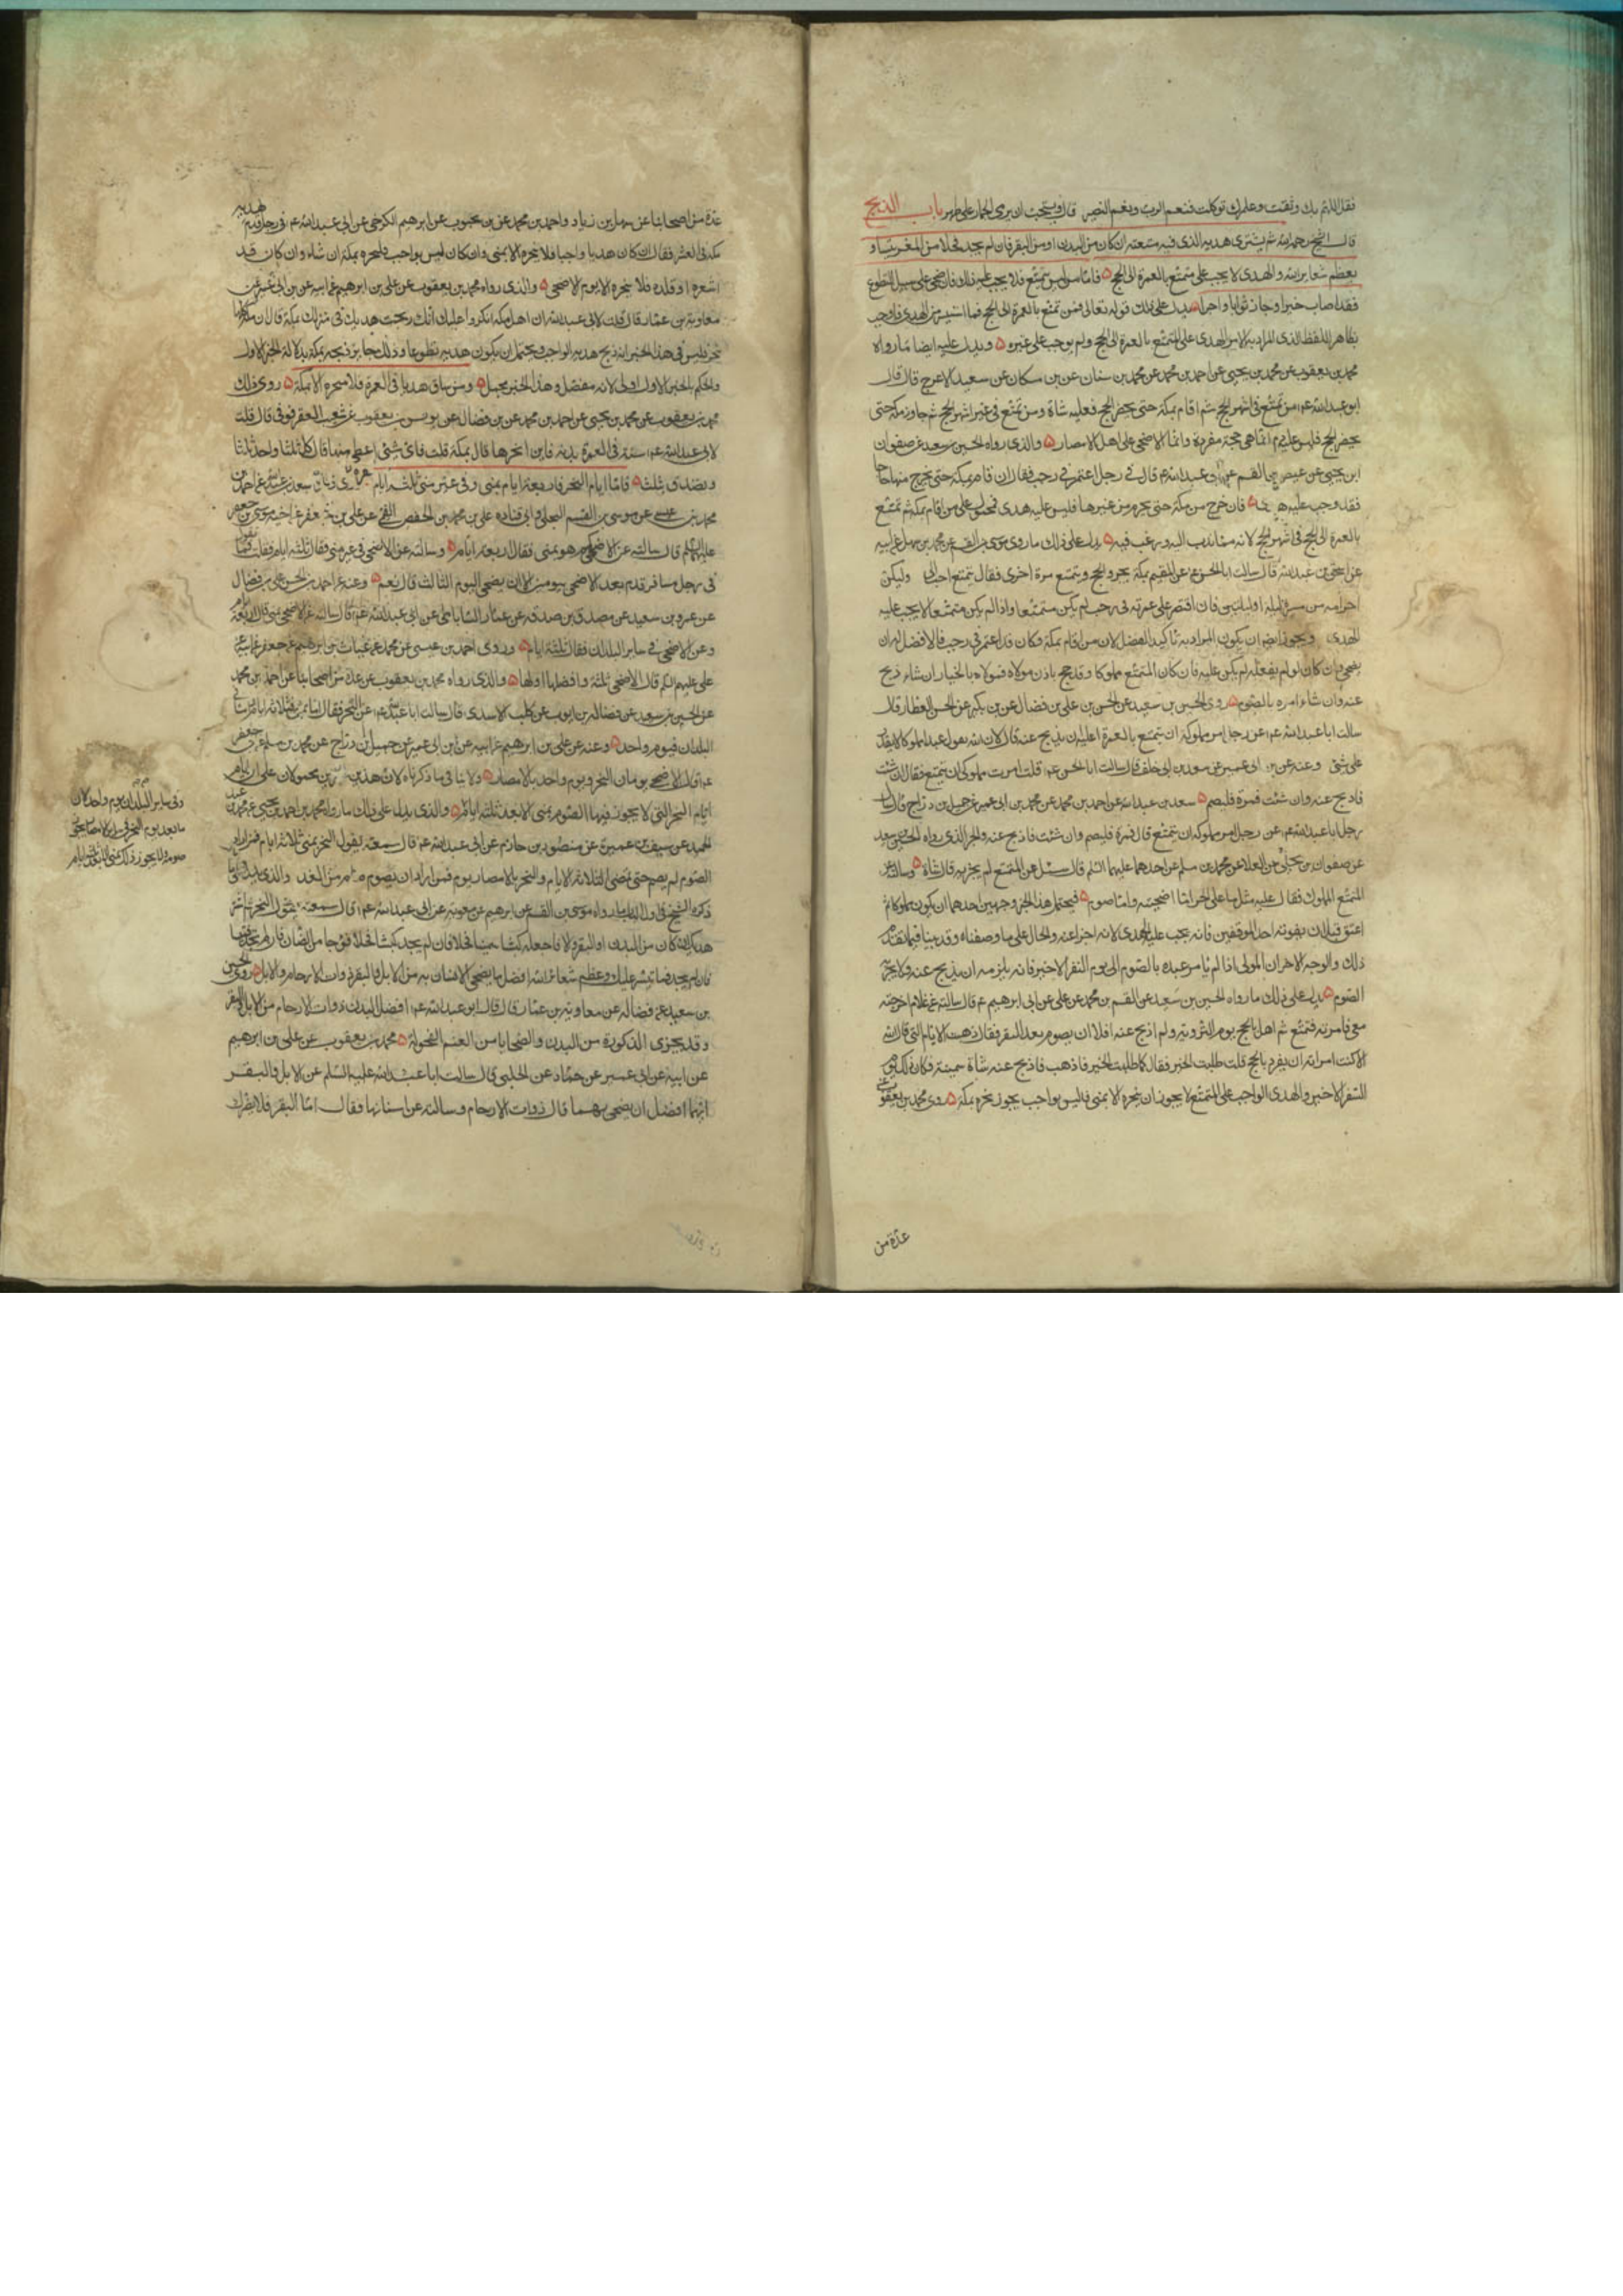 فقل اللهم بك وثقت وعليك توكلت فنعم الرب ونعم النصير قال ويستحب ان يرمى الجمار على طهر باب الذبح
قال الشيخ رحمه الله ثم يشترى هديه الذى فيه متعته ان كان من البدن او من البقر فان لم يجد فحلا من الغنم
يعظم شعاير الله والهدى لا يجب على متمتع بالعمرة الى الحج فاما من ليس بمتمتع فلا يجب عليه فان ضحى على سبيل التطوع
فقد اصاب خيرا وحاز ثوابا واجرا يدل على ذلك قوله تعالى فمن تمتع بالعمرة الى الحج فما استيسر من الهدى فاوجب
بظاهر اللفظ الذى المراد به الامر الهدى على المتمتع بالعمرة الى الحج ولم يوجب على غيره ويدل عليه ايضا ما رواه
محمد بن يعقوب عن محمد بن يحيى عن احمد بن محمد عن محمد بن سنان عن بن مسكان عن سعيد الاعرج قال قال
ابو عبد الله عم من تمتع فى اشهر الحج ثم اقام بمكة حتى يحضر الحج فعليه شاة ومن تمتع فى غير اشهر الحج ثم جاور مكة حتى
يحضر الحج فليس عليه دم انما هى حجة مفردة وانما الاضحى على اهل الامصار والذى رواه الحسين بن سعيد عن صفوان
ابن يحيى عن عيص بن القسم عن ابى عبد الله عم قال فى رجل اعتمر فى رجب فقال ان قام بمكة حتى يخرج منها حاجا
فقد وجب عليه هدى فان خرج من مكة حتى يحرم من غيرها فليس عليه هدى فمحمول على من اقام بمكة ثم تمتع
بالعمرة الى الحج فى اشهر الحج لانه مما ندب اليه ورغب فيه يدل على ذلك ما روى موسى بن القسم عن محمد بن سهل عن ابيه
عن اسحق بن عبد الله قال سالت ابا الحسن عم عن المقيم بمكة يجرد الحج ويتمتع مرة اخرى فقال يتمتع احب الى وليكن
احرامه من مسيرة ليلة او ليلتين فان اقتصر على عمرته فى رجب لم يكن متمتعا واذا لم يكن متمتعا لا يجب عليه
الهدى ويجوز ايضا ان يكون المراد به تاكيد الفضل لان من اقام بمكة وكان قد اعتمر فى رجب فالافضل له ان
يضحى وان كان لو لم يفعله لم يكن عليه فان كان المتمتع مملوكا وقد حج باذن مولاه فمولاه بالخيار ان شاء ذبح
عنه وان شاء امره بالصوم روى الحسين بن سعيد عن الحسن بن على بن فضال عن بن بكير عن الحسن العطار قال
سالت ابا عبد الله عم عن رجل امر مملوكه ان يتمتع بالعمرة اعليه ان يذبح عنه قال لا ان الله يقول عبدا مملوكا لا يقدر
على شئ وعنه عن بن ابى عمير عن سعد بن ابى خلف قال سالت ابا الحسن عم قلت امرت مملوكى ان يتمتع فقال ان شئت
فاذبح عنه وان شئت فمره فليصم سعد بن عبد الله عن احمد بن محمد عن محمد بن ابى عمير عن جميل بن دراج قال سال
رجل ابا عبد الله عم عن رجل امر مملوكه ان يتمتع قال فمره فليصم وان شئت فاذبح عنه والخبر الذى رواه الحسين بن سعيد
عن صفوان بن يحيى عن العلا عن محمد بن مسلم عن احدهما عليهما السلم قال سئل عن المتمتع لم يجزيه قال شاة وسالته عن
المتمتع المملوك فقال عليه مثل ما على الحر اما اضحية واما صوم فيحتمل هذا الخبر وجهين احدهما ان يكون مملوكا ثم
اعتق قبل ان يفوته احد الموقفين فانه يجب عليه الهدى لانه اجزا عنه والحال على ما وصفناه وقد بينا فيما تقدم
ذلك والوجه الاخر ان المولى اذا لم يامر عبده بالصوم الى يوم النفر الاخير فانه يلزمه ان يذبح عنه ولا يجزيه
الصوم يدل على ذلك ما رواه الحسين بن سعيد عن القسم بن محمد عن على عن ابى ابرهيم عم قال سالته عن غلام اخرجته
معى فامرته فتمتع ثم اهل بالحج يوم التروية ولم اذبح عنه افله ان يصوم بعد النفر فقال ذهبت الايام التى قال الله
الا كنت امرته ان يفرد بالحج قلت طلبت الخير فقال كما طلبت الخير فاذهب فاذبح عنه شاة سمينة وكان ذلك يوم
النفر الاخير والهدى الواجب على المتمتع لا يجوز ان ينحره الا بمنى وما ليس بواجب يجوز نحره بمكة روى محمد بن يعقوب
عدة من
عدة من اصحابنا عن سهل بن زياد واحمد بن محمد عن بن محبوب عن ابرهيم الكرخى عن ابى عبد الله عم فى رجل قدم هديه
مكة فى العشر فقال ان كان هديا واجبا فلا ينحره الا بمنى وان كان ليس بواجب فلينحره بمكة ان شاء وان كان قد
اشعره او قلده فلا ينحره الا يوم الاضحى والذى رواه محمد بن يعقوب عن على بن ابرهيم عن ابيه عن بن ابى عمير عن
معاوية بن عمار قال قلت لابى عبد الله ان اهل مكة انكروا عليك انك ذبحت هديك فى منزلك بمكة فقال ان مكة كلها
منحر فليس فى هذا الخبر انه ذبح هديه الواجب ويحتمل ان يكون هديه تطوعا وذلك جايز ذبحه بمكة بدلالة الخبر الاول
والحكم بالخبر الاول اولى لانه مفصل وهذا الخبر مجمل ومن ساق هديا فى العمرة فلا ينحره الا بمكة روى ذلك
محمد بن يعقوب عن محمد بن يحيى عن احمد بن محمد عن بن فضال عن يونس بن يعقوب عن شعيب العقرقوفى قال قلت
لابى عبد الله عم سقت فى العمرة بدنة فاين انحرها قال بمكة قلت فاى شئ اعطى منها قال كل ثلثا واهد ثلثا
وتصدق بثلث فاما ايام النحر فاربعة ايام بمنى وفى غير منى ثلثة ايام روى ذلك سعد بن عبد الله عن احمد بن
محمد بن عيسى عن موسى بن القسم البجلى وابى قتاده على بن محمد بن الحفص القمى عن على بن جعفر عن اخيه موسى بن جعفر
عليهما السلم قال سالته عن الاضحى كم هو بمنى فقال اربعة ايام وسالته عن الاضحى فى غير منى فقال ثلثة ايام فقلت فما تقول
فى رجل مسافر قدم بعد الاضحى بيومين اله ان يضحى اليوم الثالث قال نعم وعنه عن احمد بن الحسن بن على بن فضال
عن عمرو بن سعيد عن مصدق بن صدقه عن عمار الساباطى عن ابى عبد الله عم قال سالته عن الاضحى بمنى قال اربعة ايام
وعن الاضحى فى ساير البلدان فقال ثلثة ايام وروى احمد بن محمد بن عيسى عن محمد عن غياث بن ابرهيم عن جعفر عن ابيه عن
على عليهم السلم قال الاضحى ثلثة وافضلها اولها والذى رواه محمد بن يعقوب عن عدة من اصحابنا عن احمد بن محمد
عن الحسين بن سعيد عن فضالة بن ايوب عن كليب الاسدى قال سالت ابا عبد الله عم عن النحر فقال اما بمنى فثلاثة ايام واما فى
البلدان فيوم واحد وعنه عن على بن ابرهيم عن ابيه عن ابن ابى عمير عن جميل بن دراج عن محمد بن مسلم عن ابى جعفر
عم قال الاضحى يومان بعد يوم النحر ويوم واحد بالامصار ولا ينافى ما ذكرناه لان هذين الخبرين محمولان على ان ايام
ايام النحر التى لا يجوز فيها الصوم بمنى الا بعد ثلثة ايام والذى يدل على ذلك ما رواه محمد بن احمد بن يحيى عن محمد بن عبد
الحميد عن سيف بن عميرة عن منصور بن حازم عن ابى عبد الله عم قال سمعته يقول النحر بمنى ثلاثة ايام فمن اراد
الصوم لم يصم حتى تمضى الثلاثة الايام والنحر بالامصار يوم فمن اراد ان يصوم صام من الغد والذى يدل على ما
ذكره الشيخ رواه موسى بن القسم عن ابرهيم عن معوية عن ابى عبد الله عم قال سمعته يقول النحر ثم اشتر
هديك ان كان من البدن او البقر والا فاجعله كبشا سمينا فحلا فان لم تجد كبشا فحلا فموجا من الضان فان لم تجد فتيسا
فان لم تجد فما تيسر عليك وعظم شعاير الله افضل ما يضحى الانسان به من الابل والبقر ذوات الارحام روى الحسين
بن سعيد عن فضاله عن معاوية بن عمار قال قال ابو عبد الله عم افضل البدن ذوات الارحام من الابل والبقر
وقد يجزى الذكورة من البدن والضحايا من الغنم الفحولة محمد بن يعقوب عن على بن ابرهيم
عن ابيه عن ابى عمير عن حماد عن الحلبى قال سالت ابا عبد الله عليه السلم عن الابل والبقر
ايهما افضل ان يضحى بهما قال ذوات الارحام وسالته عن اسنانها فقال اما البقر فلا يضرك
وفى ساير البلدان يوم واحد لان
ما بعد يوم النحر فى ساير الامصار يجوز
صومه ولا يجوز ذلك بمنى الا بعد ثلثة ايام